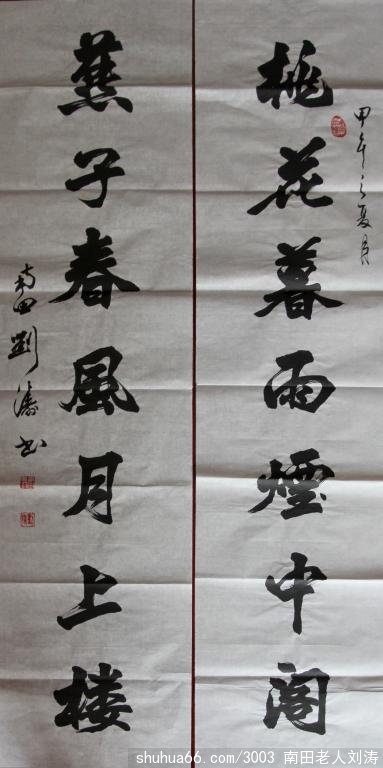 桃花暮雨煙中阁
甲午之夏月
燕子春風月上樓
南田劉濤书
shuhua66.com/3003 南田老人刘涛